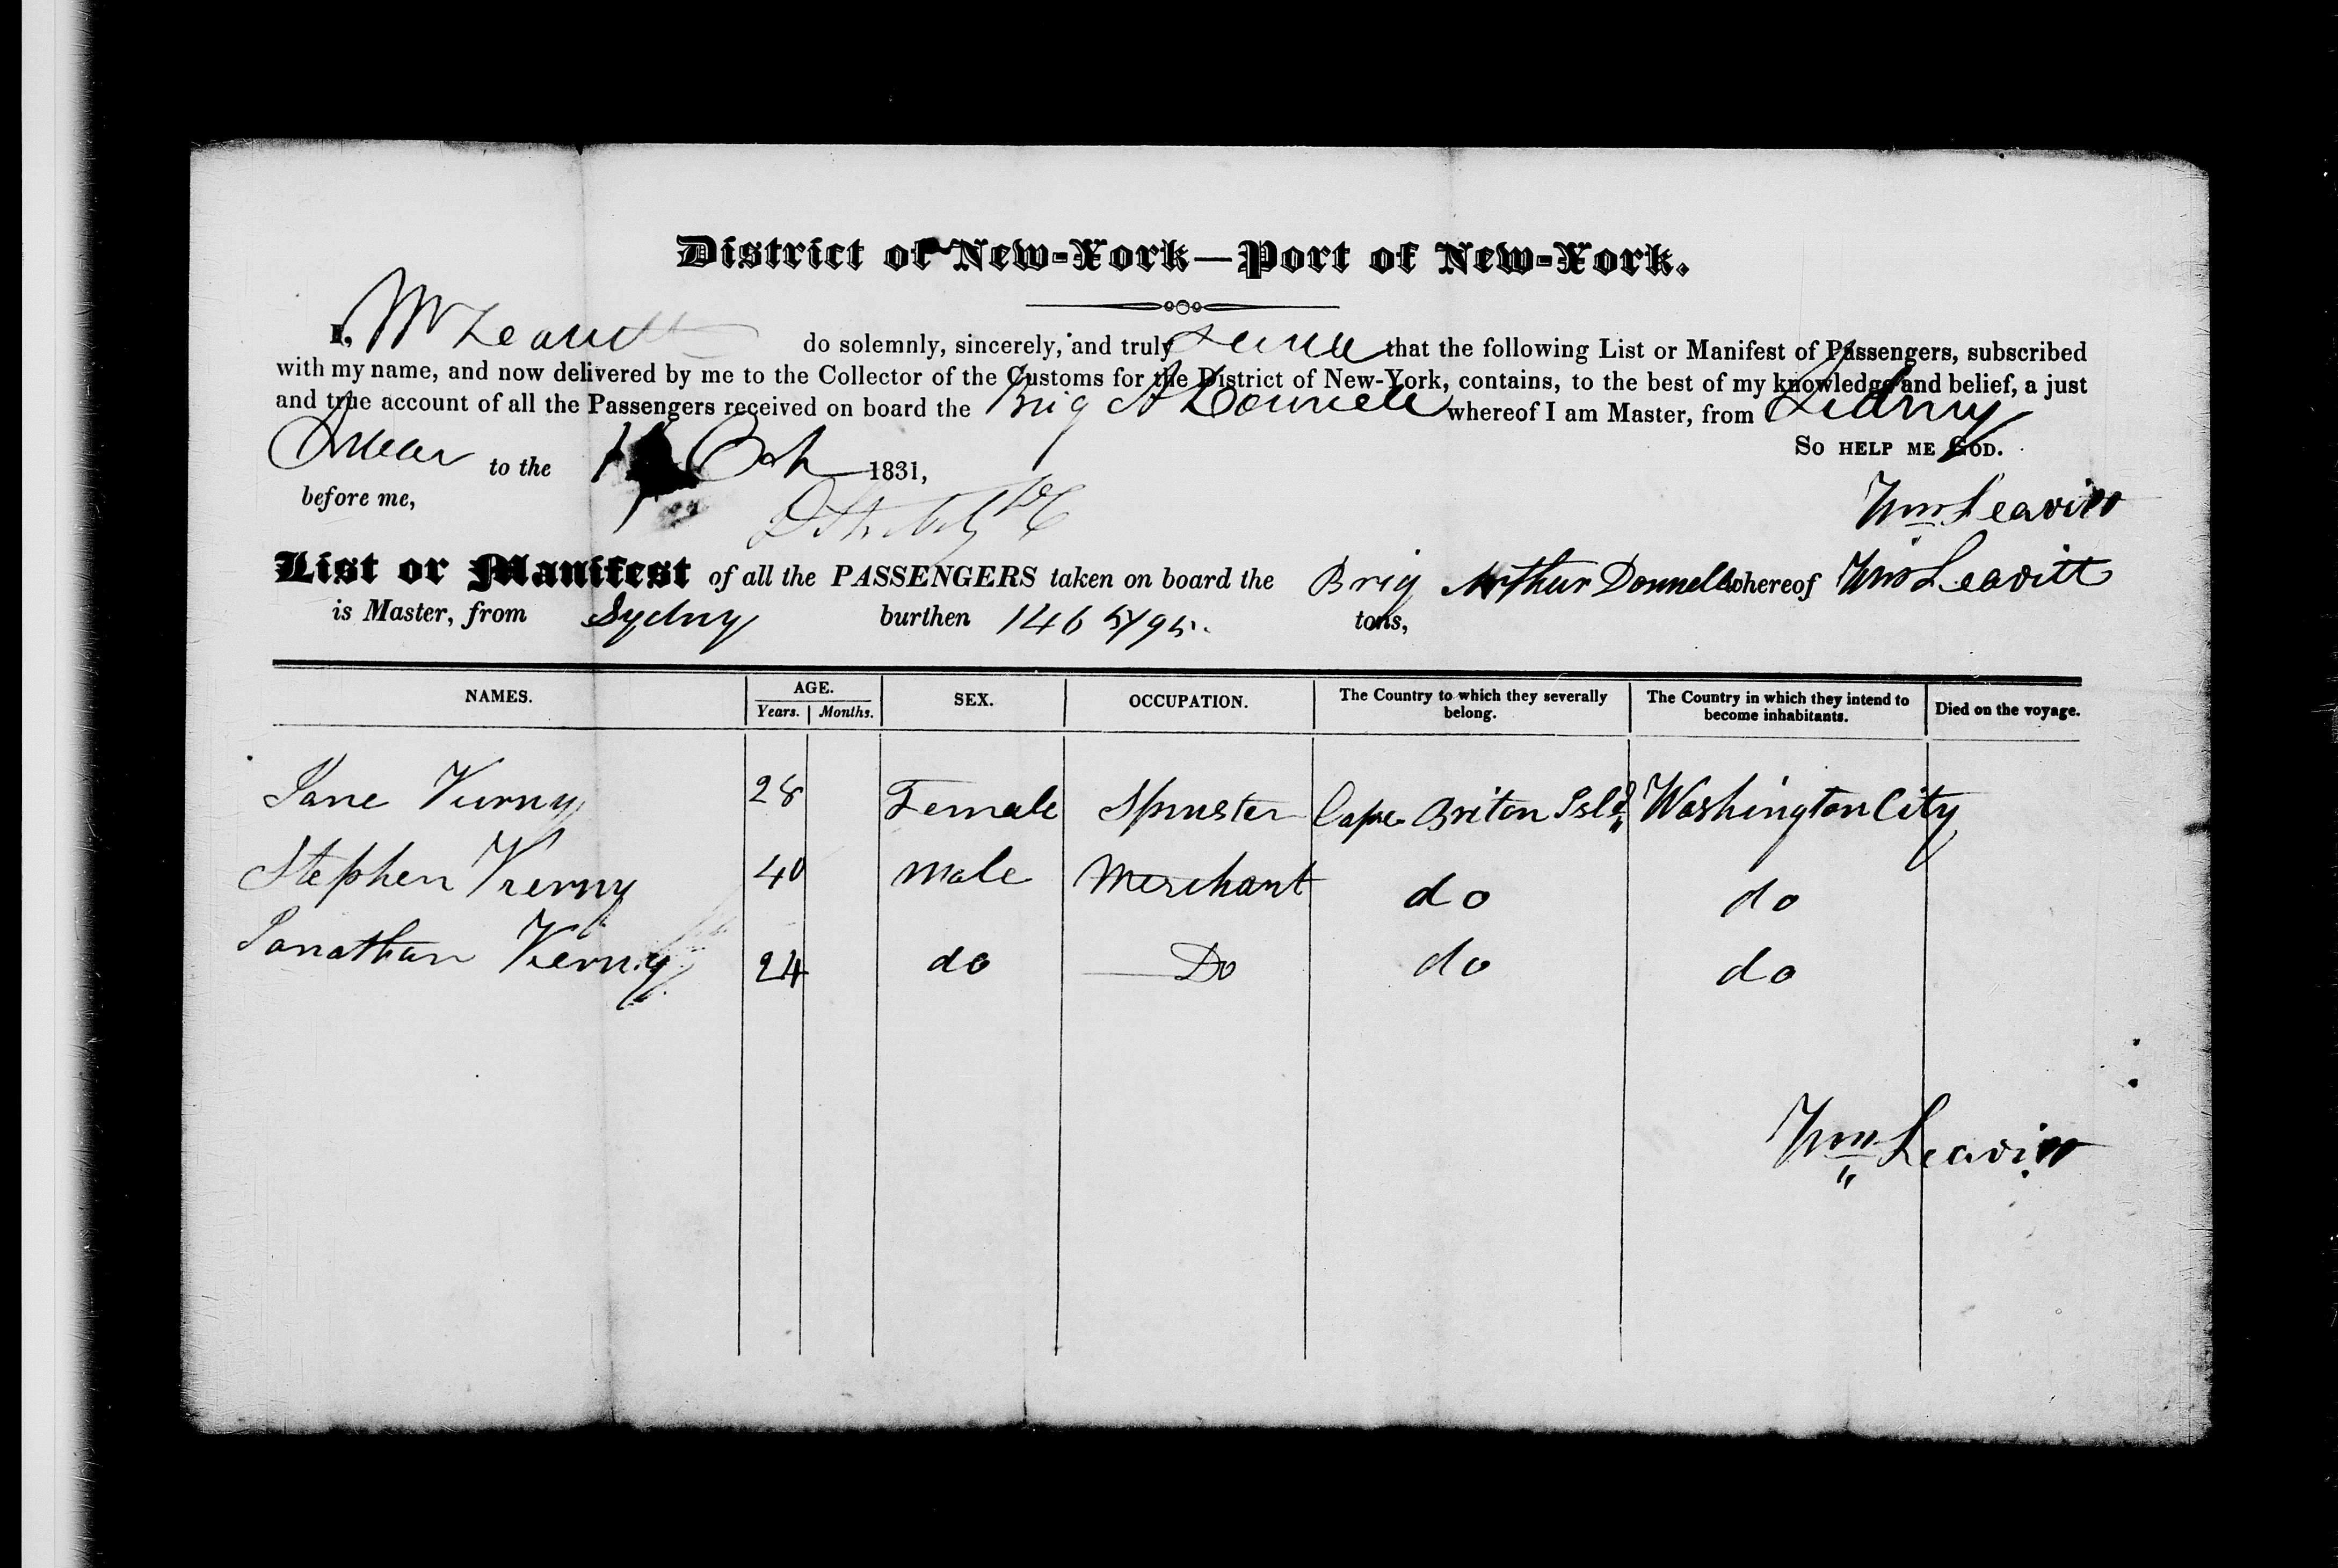 District of New-York—Port of New-York.
I, Wm Leavitt do solemnly, sincerely, and truly swear that the following List or Manifest of Passengers, subscribed
with my name, and now delivered by me to the Collector of the Customs for the District of New-York, contains, to the best of my knowledge and belief, a just
and true account of all the Passengers received on board the Brig A Donnell whereof I am Master, from Sidny
Swear to the 1 Oct 1831, So HELP ME GOD.
before me, Wm Leavitt
List or Manifest of all the PASSENGERS taken on board the Brig Arthur Donnell whereof Wm Leavitt
is Master, from Sydny burthen 146 5/95. tons,
NAMES. AGE. Years. Months. SEX. OCCUPATION. The Country to which they severally belong. The Country in which they intend to become inhabitants. Died on the voyage.
Jane 28 Female Spinster Cape Briton Isld Washington City
Stephen 40 male Merchant do do
Jonathan Kerny 24 do Do do do
Wm Leavitt